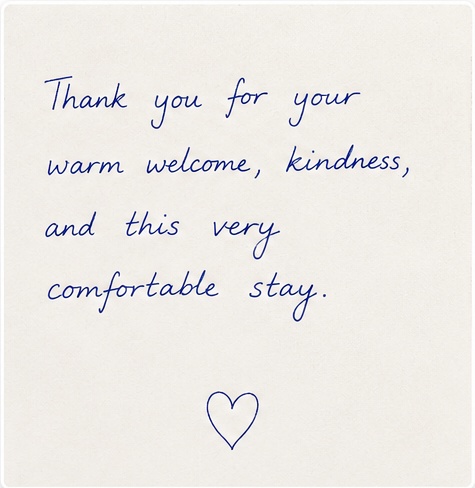 Thank you for your
warm welcome, kindness,
and this very
comfortable stay.